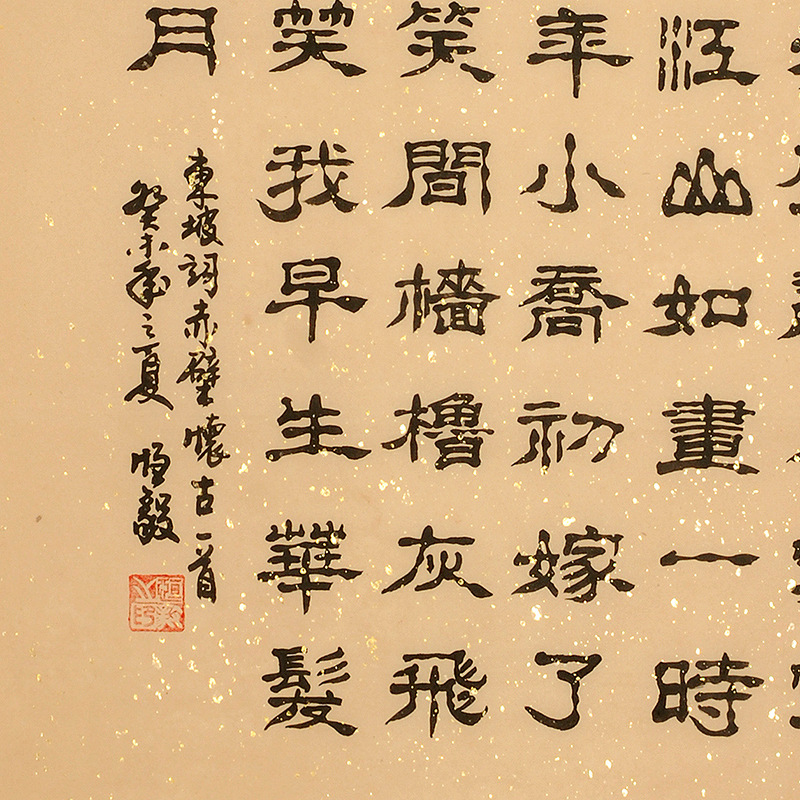 江山如畫一時
年小喬初嫁了
笑間檣櫓灰飛
笑我早生華髮
月
東坡詞赤壁懷古一首
癸未年之夏 恒毅